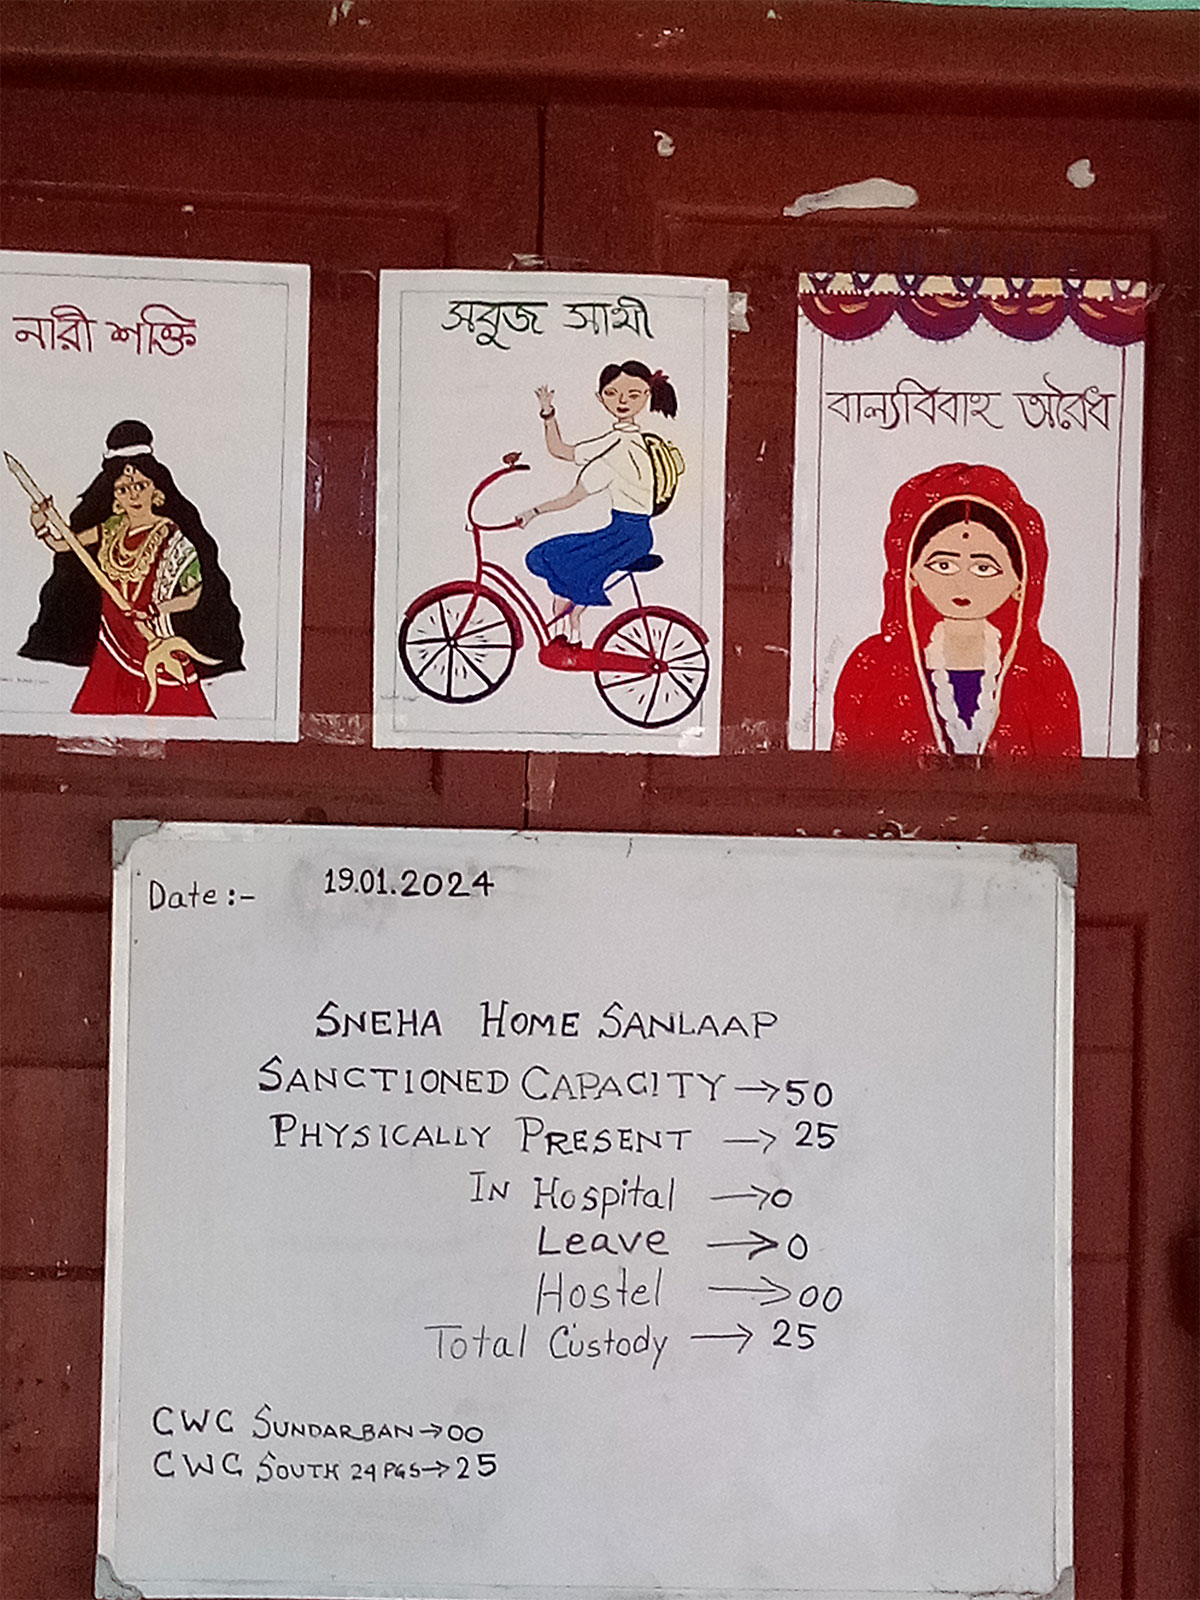 নারী শক্তি
সবুজ সাথী
বাল্যবিবাহ অবৈধ
Date :- 19.01.2024
SNEHA HOME SANLAAP
SANCTIONED CAPACITY → 50
PHYSICALLY PRESENT → 25
IN Hospital → 0
Leave → 0
Hostel → 00
Total Custody → 25
CWC SUNDARBAN → 00
CWC SOUTH 24 PGS → 25